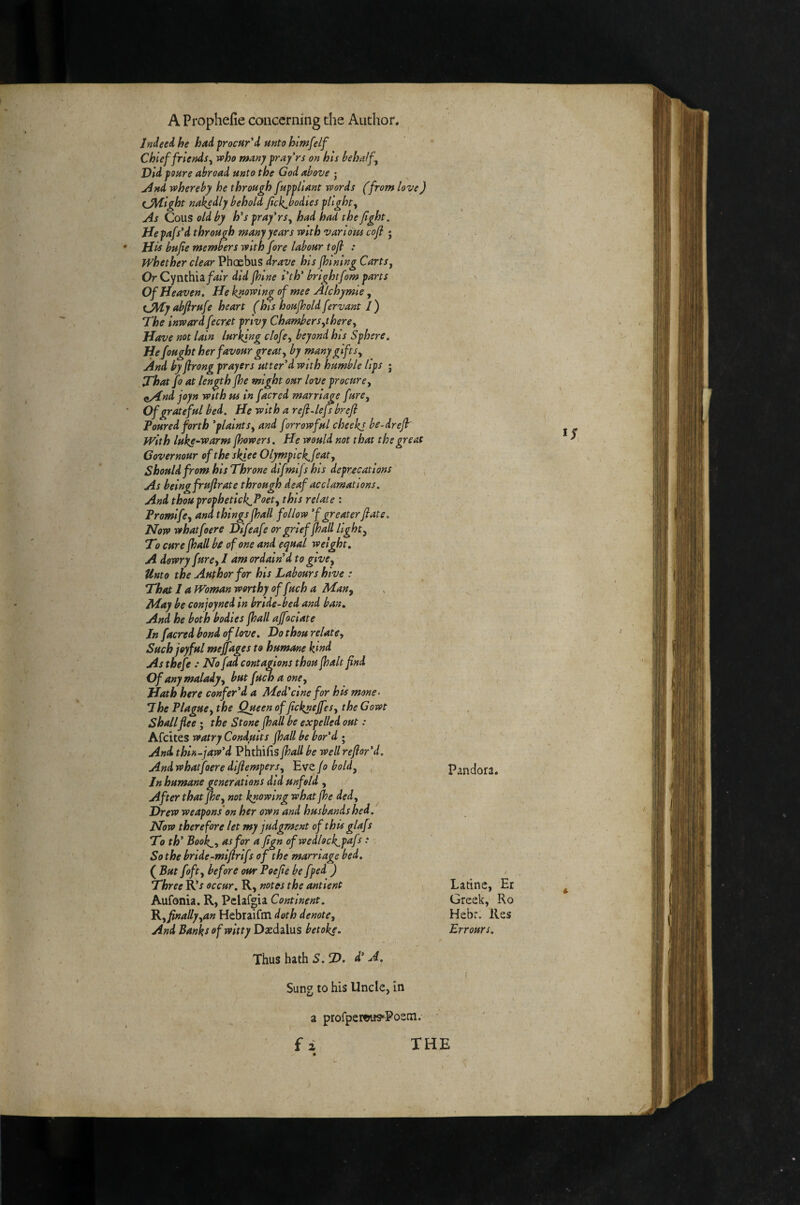 A Prophesie concerning the Author.
Indeed he had procur'd unto himself
Chief friends, who many pray'rs on his behalf,
Did poure abroad unto the God above ;
And whereby he through suppliant words (from love)
Might nakedly behold sick bodies plight,
As Cous old by h's pray'rs, had had the sight.
He pass'd through many years with various cost ;
His busie members with sore labour tost :
Whether clear Phœbus drave his shining Carts,
Or Cynthia fair did shine i'th' brightsom parts
Of Heaven. He knowing of mee Alchymie,
My abstruse heart (his houshold servant I)
The inward secret privy Chambers, there,
Have not lain lurking close, beyond his Sphere.
He sought her favour great, by many gifts,
And by strong prayers utter'd with humble lips ;
That so at length she might our love procure,
And joyn with us in sacred marriage sure,
Of grateful bed. He with a rest-less brest
Poured forth 'plaints, and sorrowful cheeks be-drest
With luke-warm showers. He would not that the great
15
Governour of the skiee Olympick seat,
Should from his Throne dismiss his deprecations
As being frustrate through deaf acclamations.
And thou prophetick Poet, this relate :
Promise, and things shall follow 'f greater state.
Now whatsoere Disease or grief shall light,
To cure shall be of one and equal weight.
A dowry sure, I am ordain'd to give,
Unto the Author for his Labours hive :
That I a Woman worthy of such a Man,
May be conjoyned in bride-bed and ban.
And he both bodies shall associate
In sacred bond of love. Do thou relate,
Such joyful messages to humane kind
As these : No sad contagions thou shalt find
Of any malady, but such a one,
Hath here confer'd a Med'cine for his mone.
The Plague, the Queen of sicknesses, the Gowt
Shall flee ; the Stone shall be expelled out :
Ascites watry Conduits shall be bor'd ;
And thin-jaw'd Phthisis shall be well restor'd.
And whatsoere distempers, Eve so bold,
Pandora.
In humane generations did unfold,
After that she, not knowing what she ded,
Drew weapons on her own and husbands hed.
Now therefore let my judgment of this glass
To th' Book, as for a sign of wedlock pass :
So the bride-mistriss of the marriage bed.
(But soft, before our Poesie be sped)
Three R's occur. R, notes the antient
Latine, Er
Ausonia. R, Pelasgia Continent.
Greek, Ro
R, finally, an Hebraism doth denote,
Hebr. Res
And Banks of witty Dædalus betoke.
Errours.
Thus hath S. D. d' A.
Sung to his Uncle, in
a prosperous Poem.
f 2
THE